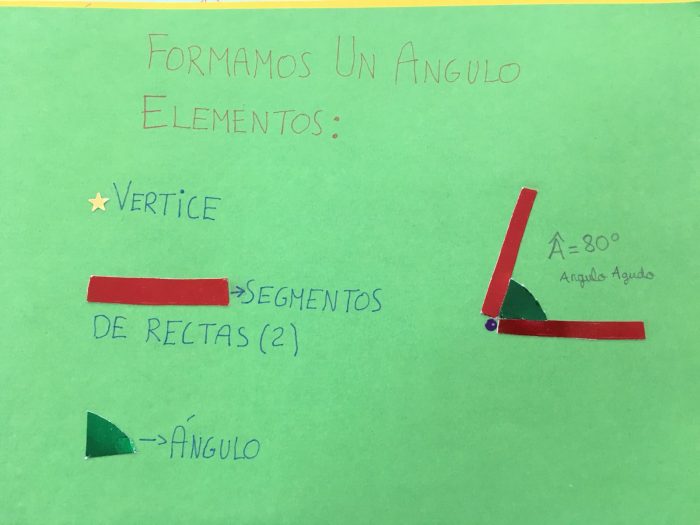 FORMAMOS UN ANGULO
ELEMENTOS:
VERTICE
→SEGMENTOS
DE RECTAS (2)
→ÁNGULO
Â=80°
Angulo Agudo